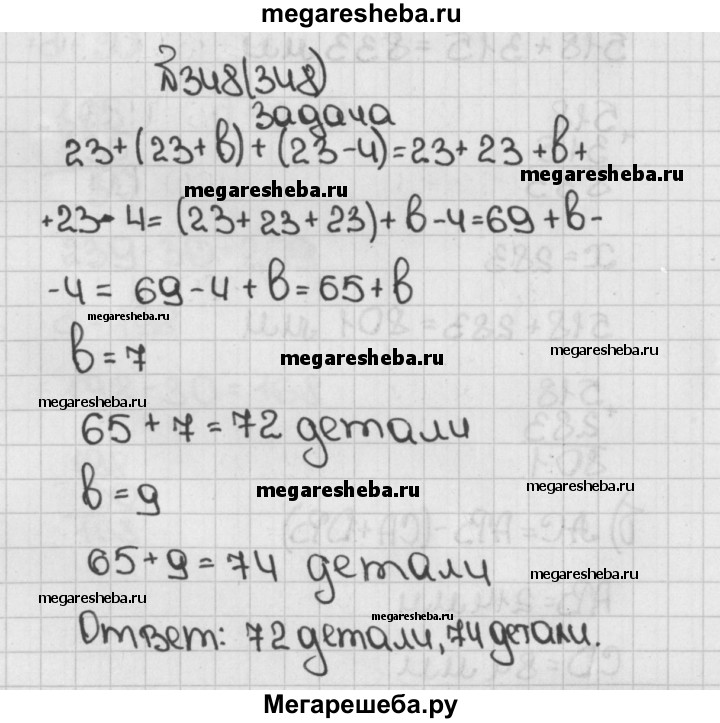 megaresheba.ru
№348(348)
Задача
23+(23+в)+(23-4)=23+23+в+
megaresheba.ru
megaresheba.ru
+23-4=(23+23+23)+в-4=69+в-
-4=69-4+в=65+в
megaresheba.ru
в=7
megaresheba.ru
megaresheba.ru
megaresheba.ru
65+7=72 детали
в=9
megaresheba.ru
megaresheba.ru
65+9=74 детали
megaresheba.ru
megaresheba.ru
megaresheba.ru
Ответ: 72 детали, 74 детали.
Мегарешеба.ру